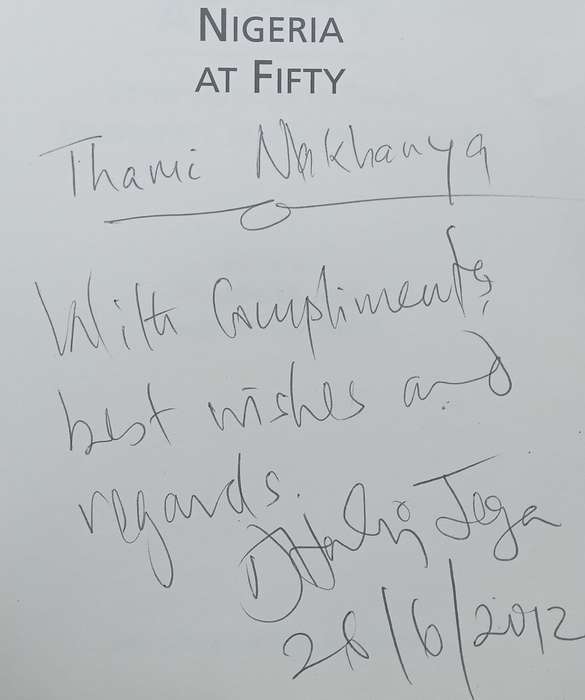 NIGERIA
AT FIFTY
Thami
With Compliments,
best wishes and
regards.
Jega
28/6/2012